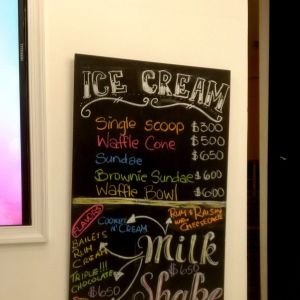 ICE CREAM
Single Scoop $300
Waffle Cone $500
Sundae $650
Brownie Sundae $600
Waffle Bowl $600
FLAVORS
COOKIES N' CREAM
RUM & RAISIN
CHEESECAKE
BAILEYS
RUM
CREAM
TRIPLE!!!
CHOCOLATE
Milk
$650
Shake
$650